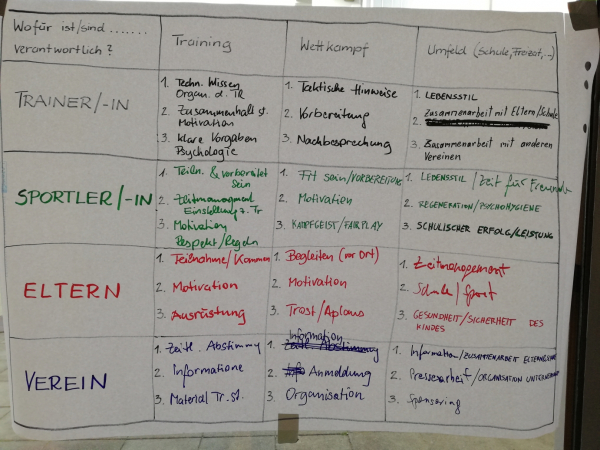 Wofür ist/sind .......
verantwortlich?
Training
Wettkampf
Umfeld (Schule, Freizeit, ...)
TRAINER/-IN
1. Techn. Wissen
Organ. d. TR
2. Zusammenhalt st.
Motivation
3. klare Vorgaben
Psychologie
1. Taktische Hinweise
2. Vorbereitung
3. Nachbesprechung
1. LEBENSSTIL
2. Zusammenarbeit mit Eltern/Schule
3. Zusammenarbeit mit anderen
Vereinen
SPORTLER/-IN
1. Teiln. & vorbereitet
sein
2. Zeitmanagement
Einstellung z. Tr
3. Motivation
Respekt/Regeln
1. Fit sein/VORBEREITUNG
2. Motivation
3. KAMPFGEIST/FAIRPLAY
1. LEBENSSTIL/Zeit für
2. REGENERATION/PSYCHOHYGIENE
3. SCHULISCHER ERFOLG/LEISTUNG
ELTERN
1. Teilnahme/Kommen
2. Motivation
3. Ausrüstung
1. Begleiten (vor Ort)
2. Motivation
3. Trost/Aplaus
1. Zeitmanagement
2. Schule/Sport
3. GESUNDHEIT/SICHERHEIT DES
KINDES
VEREIN
1. Zeitl. Abstimmy
2. Informatione
3. Material Tr. st.
Information
1. Zeitl. Abstimmung
2. Anmeldung
3. Organisation
1. Information/ZUSAMMENARBEIT
2. Pressearbeit/ORGANISATION
3. Sponsoring